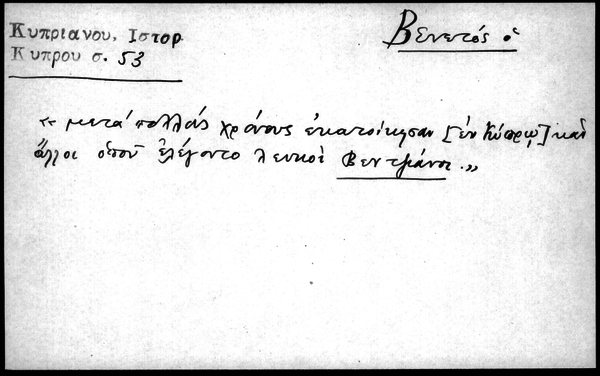 Κυπριανου, Ιστορ
Κυπρου σ. 53
Βενετός ὁ
« μετά πολλούς χρόνους ἐκατοίκησαν [ἐν Κύπρῳ] καί
ἄλλοι ὁποῦ ἐλέγοντο λευκοί Βεντζιάνοι.»